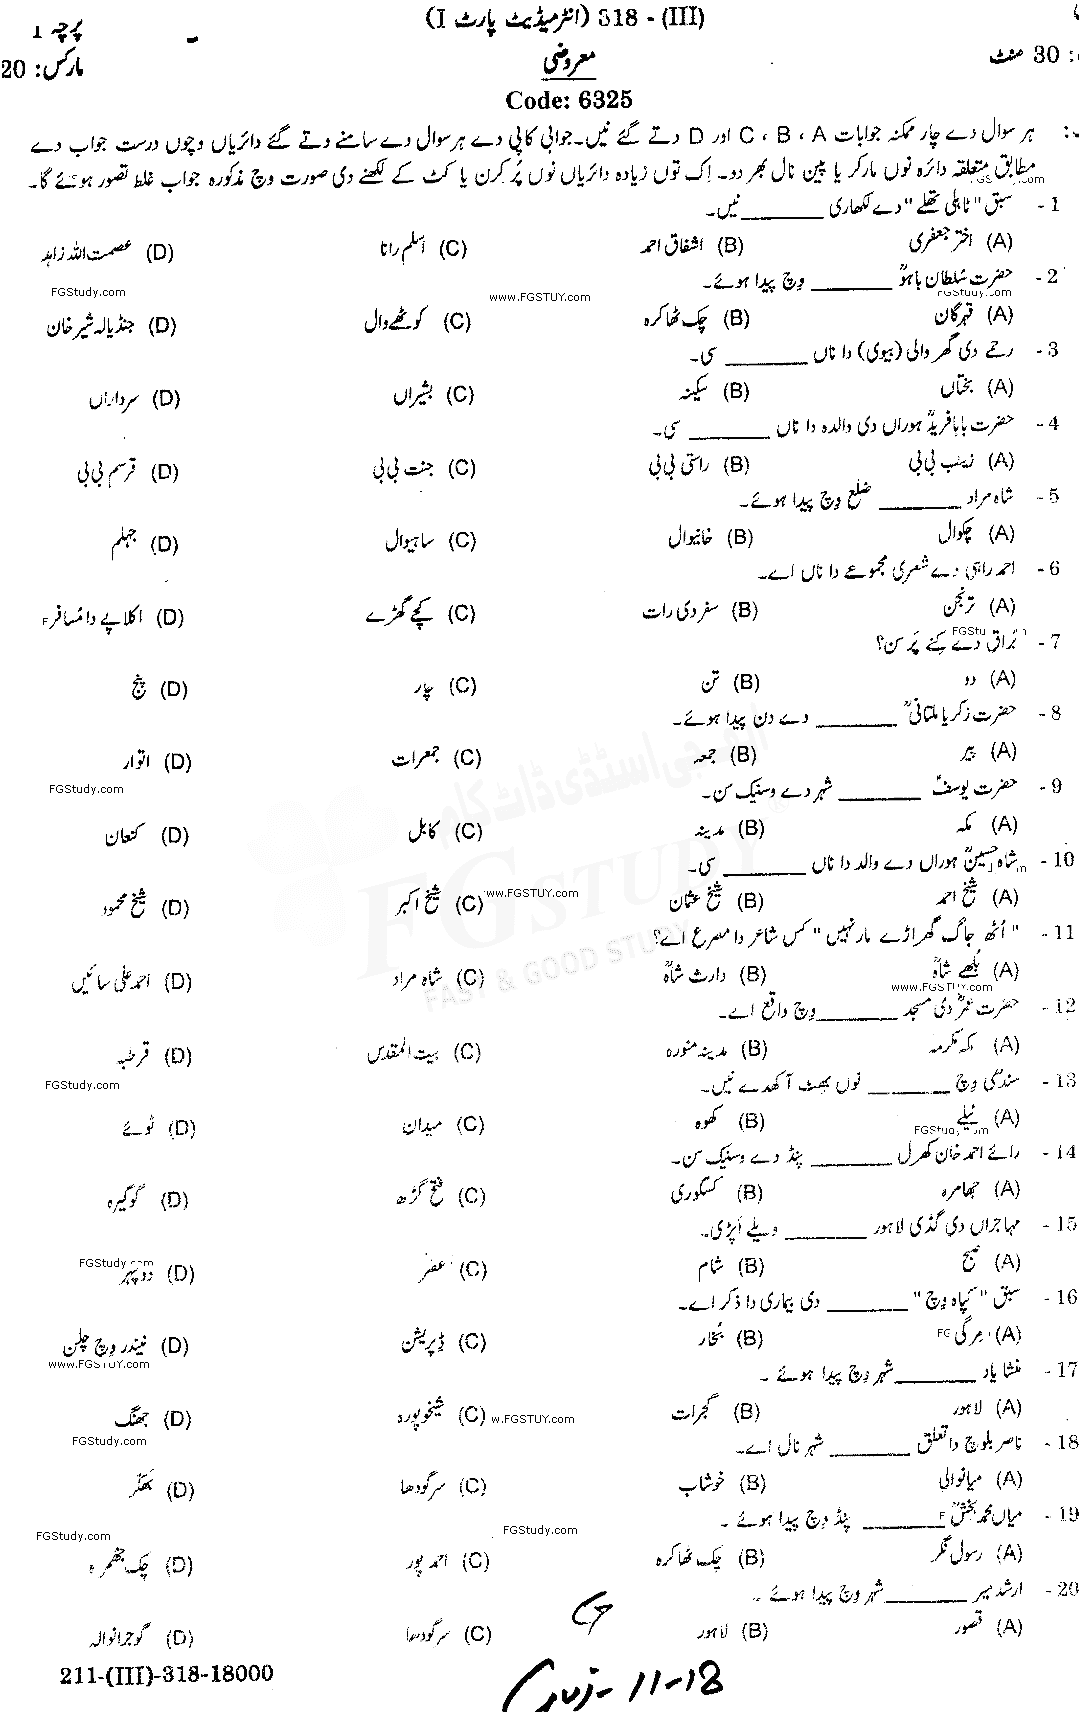 318 - (III) (انٹرمیڈیٹ پارٹ I)
پرچہ I
30 منٹ
معروضی
مارکس: 20
Code: 6325
ہر سوال دے چار ممکنہ جوابات A ، B ، C اور D دتے گئے نیں۔ جوابی کاپی دے ہر سوال دے سامنے دتے گئے دائریاں وچوں درست جواب دے
مطابق متعلقہ دائرہ نوں مارکر یا پین نال بھر دو۔ اِک توں زیادہ دائریاں نوں پُر کرن یا کٹ کے لکھنے دی صورت وچ مذکورہ جواب غلط تصور ہوئے گا۔
1 - سبق "ٹاہلی تھلے" دے لکھاری ______ نیں۔
(A) اختر جعفری (B) اشفاق احمد (C) اسلم رانا (D) عصمت اللہ زاہد
FGStudy.com
www.FGSTUY.com
2 - حضرت سُلطان باہوؒ ______ وچ پیدا ہوئے۔
(A) قہرگان (B) چک ٹھاکرہ (C) کوٹھے وال (D) جنڈیالہ شیر خان
3 - رحمے دی گھر والی (بیوی) دا ناں ______ سی۔
(A) بختاں (B) سکینہ (C) بشیراں (D) سرداراں
4 - حضرت بابا فریدؒ ہوراں دی والدہ دا ناں ______ سی۔
(A) زینب بی بی (B) راستی بی بی (C) جنت بی بی (D) قرسم بی بی
5 - شاہ مراد ______ ضلع وچ پیدا ہوئے۔
(A) چکوال (B) خانیوال (C) ساہیوال (D) جہلم
6 - احمد راہی دے شعری مجموعے دا ناں اے۔
(A) ترنجن (B) سفر دی رات (C) کچے گھڑے (D) اکلاپے دا مُسافر
7 - بُراق دے کِنے پَر سن؟
(A) دو (B) تن (C) چار (D) پنج
8 - حضرت زکریا ملتانیؒ ______ دے دن پیدا ہوئے۔
(A) پیر (B) جمعہ (C) جمعرات (D) اتوار
FGStudy.com
9 - حضرت یوسفؑ ______ شہر دے وسنیک سن۔
(A) مکہ (B) مدینہ (C) کابل (D) کنعان
10 - شاہ حسینؒ ہوراں دے والد دا ناں ______ سی۔
(A) شیخ احمد (B) شیخ عثمان (C) شیخ اکبر (D) شیخ محمود
ww.FGSTUY.com
11 - "اُٹھ جاگ گھراڑے مار نہیں" کس شاعر دا مصرع اے؟
(A) بُلھے شاہؒ (B) وارث شاہؒ (C) شاہ مراد (D) احمد علی سائیں
www.FGSTUY.com
12 - حضرت عمرؓ دی مسجد ______ وچ واقع اے۔
(A) مکہ مکرمہ (B) مدینہ منورہ (C) بیت المقدس (D) قرطبہ
FGStudy.com
13 - سندھی وچ ______ نوں بھٹ آکھدے نیں۔
(A) ٹیلے (B) کھوہ (C) میدان (D) ٹوئے
14 - رائے احمد خان کھرل ______ پنڈ دے وسنیک سن۔
(A) جھامرہ (B) کنگوری (C) فتح گڑھ (D) گوگیرہ
15 - مہاجراں دی گڈی لاہور ______ ویلے اُپڑی۔
(A) صبح (B) شام (C) عصر (D) دوپہر
FGStudy.com
16 - سبق "کپاہ وچ" ______ دی بیماری دا ذکر اے۔
(A) مرگی (B) بُخار (C) ڈپریشن (D) نیندر وچ چلن
www.FGSTUY.com
17 - منشا یاد ______ شہر وچ پیدا ہوئے۔
(A) لاہور (B) گجرات (C) شیخوپورہ (D) جھنگ
w.FGSTUY.com
FGStudy.com
18 - ناصر بلوچ دا تعلق ______ شہر نال اے۔
(A) میانوالی (B) خوشاب (C) سرگودھا (D) بھکر
19 - میاں محمد بخشؒ ______ پنڈ وچ پیدا ہوئے۔
FGStudy.com
FGStudy.com
(A) رسول نگر (B) چک ٹھاکرہ (C) احمد پور (D) چک جھمرہ
20 - ارشد میر ______ شہر وچ پیدا ہوئے۔
(A) قصور (B) لاہور (C) سرگودھا (D) گوجرانوالہ
211-(III)-318-18000
11-18
ایف جی اسٹڈی ڈاٹ کام
FGSTUDY
FAST & GOOD STUDY